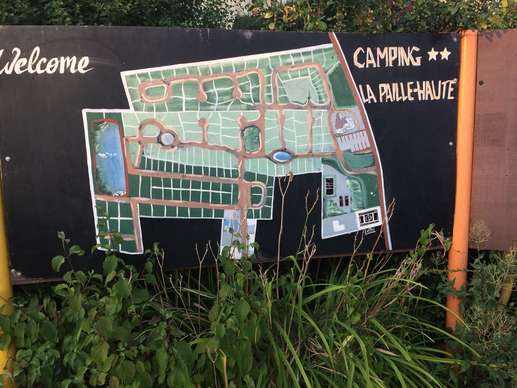 Welcome
CAMPING **
LA PAILLE-HAUTE